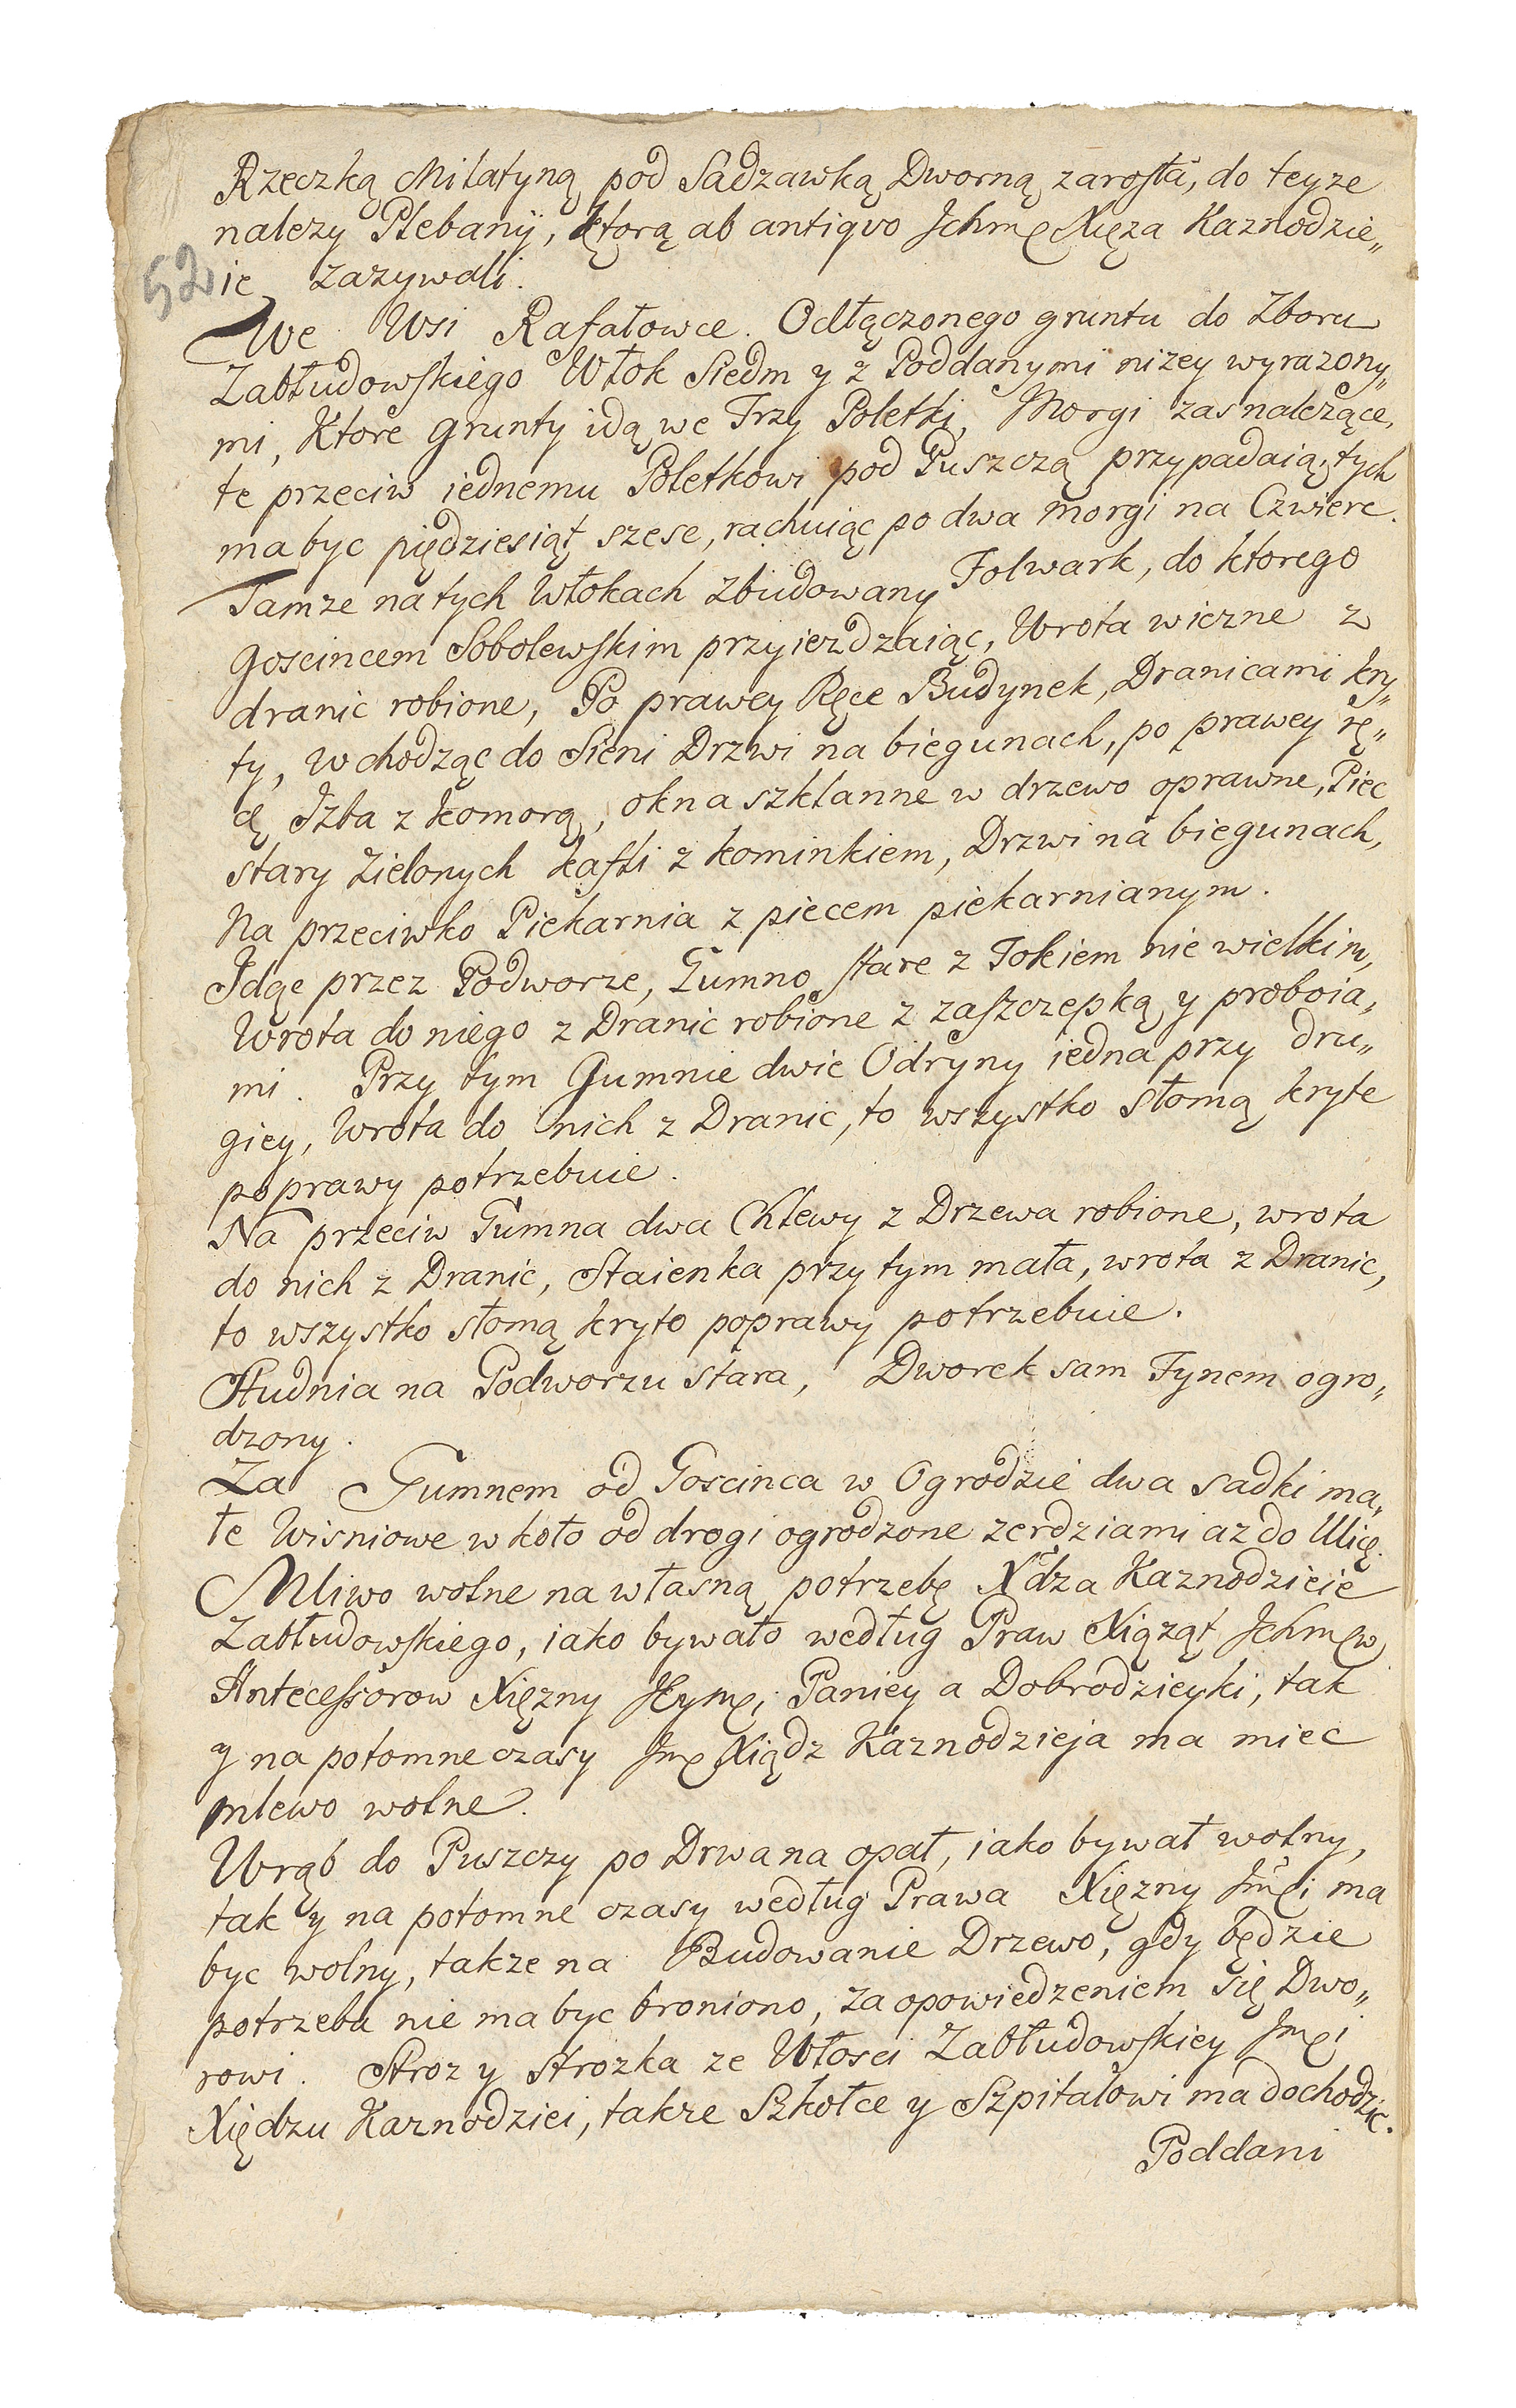 Rzeczką Milatyną pod Sadzawką Dworną zarosła, do teyze
nalezy Plebanÿ, ktorą ab antiqvo Jchmę Xięza Kaznodzie„
52 ie zazywali.
We Wsi Rafałowce. Odłączonego gruntu do Zboru
Zabłudowskiego Włok Siedm y z Poddanymi nizey wyrazony„
mi, Ktore grunty idą we Trzy Poletki, Morgi zas nalezące,
te przeciw iednemu Poletkowi pod Puszczą przypadaią, tych
ma byc piędziesiąt szesc, rachuiąc po dwa morgi na Czwierc.
Tamze na tych Włokach zbudowany Folwark, do ktorego
Goscincem Sobolewskim przyiezdzaiąc, Wrota wiezne z
dranic robione, Po prawey Ręce Budynek, Dranicami kry„
ty, Wchodząc do Sieni Drzwi na biegunach, po prawey rę„
cę Jzba z komorą, okna szklanne w drzewo oprawne, Piec
stary zielonych kafli z kominkiem, Drzwi na biegunach,
Na przeciwko Piekarnia z piecem piekarnianym.
Jdąc przez Podworze, Gumno stare z Tokiem nie wielkim,
Wrota do niego z Dranic robione z zaszczepką y proboia„
mi. Przy tym Gumnie dwie Odryny iedna przy dru„
giey, Wrota do nich z Dranic, to wszystko słomą kryte
poprawy potrzebuie.
Na przeciw Gumna dwa Chlewy z Drzewa robione, wrota
do nich z Dranic, Staienka przy tym mała, wrota z Dranic,
to wszystko słomą kryto poprawy potrzebuie.
Studnia na Podworzu stara, Dworek sam Tynem ogro„
dzony.
Za Gumnem od Goscinca w Ogrodzie dwa sadki ma„
łe Wisniowe w koło od drogi ogrodzone zerdziami az do Ulicę.
Mliwo wolne na własną potrzebę Xdza Kaznodzieie
Zabłudowskiego, iako bywało według Praw Xiąząt Jchmęw
Antecessorow Xięzny Jeymęi Paniey a Dobrodzieyki, tak
y na potomne czasy Jmę Xiądz Kaznodzieja ma miec
mlewo wolne.
Wrąb do Puszczy po Drwa na opał, iako bywał wolny,
tak y na potomne czasy według Prawa Xięzny Jmęi ma
byc wolny, takze na Budowanie Drzewo, gdy będzie
potrzeba nie ma byc broniono, za opowiedzeniem się Dwo„
rowi. Stroz y strozka ze Włosci Zabłudowskiey Jmęi
Xiędzu Kaznodziei, takze Szkołce y Szpitalowi ma dochodzic.
Poddani